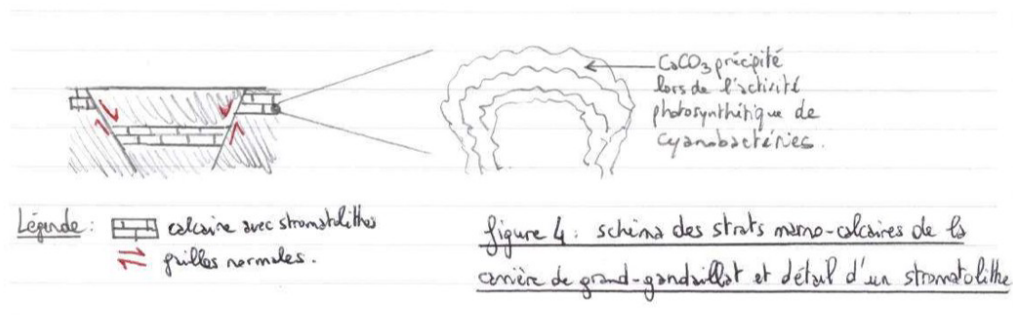 CaCO3 précipité
lors de l'activité
photosynthétique de
cyanobactéries.
Légende : calcaire avec stromatolithes
failles normales.
figure 4 : schéma des strats marno-calcaires de la
carrière de grand-gandaillat et détail d'un stromatolithe